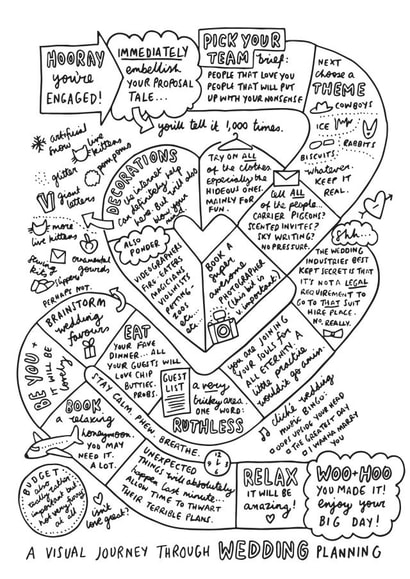 HOORAY
you're
ENGAGED!
IMMEDIATELY
embellish
YOUR PROPOSAL
TALE...
you'll tell it 1,000 times.
PICK YOUR
TEAM brief:
PEOPLE THAT LOVE YOU
PEOPLE THAT WILL PUT
UP WITH YOUR NONSENSE
NEXT
choose a
THEME
COWBOYS
ICE
RABBITS
BISCUITS.
whatever.
KEEP IT
REAL.
Shhh...
THE WEDDING
INDUSTRIES BEST
KEPT SECRET IS THAT
IT'S NOT A LEGAL
REQUIREMENT TO
GO TO THAT SUIT
HIRE PLACE.
NO, REALLY.
TRY ON ALL
OF THE CLOTHES
especially the
HIDEOUS ONES.
MAINLY FOR
FUN.
tell ALL
of the people...
CARRIER PIGEONS?
SCENTED INVITES?
SKY WRITING?
NO PRESSURE.
DECORATIONS
artificial
snow
live
kittens
pompoms
glitter
giant
letters
more
live kittens
sewing
kits
ornamental
gourds
slippers
PERHAPS NOT.
ALSO
PONDER
VIDEOGRAPHERS
FIRE EATERS
MAGICIANS
VIOLINISTS
etc...
etc
BOOK A
super
awesome
PHOTOGRAPHER
(this one is
v. important)
you are JOINING
YOUR SOULS FOR
ALL ETERNITY. A
little practice
wouldn't go amiss.
cliché wedding
music BINGO:
OOPS INSIDE YOUR HEAD
THE GREATEST DAY
I WANNA MARRY
YOU
BRAINSTORM
wedding
favours
BE YOU +
IT WILL BE
lovely
EAT
YOUR FAVE
DINNER... ALL
YOUR GUESTS WILL
LOVE CHIP
BUTTIES.
PROBS.
GUEST
LIST
a very
tricky area.
ONE WORD:
RUTHLESS
STAY CALM, PHEW, BREATHE.
BOOK
a relaxing
honeymoon.
YOU MAY
NEED IT.
A LOT.
BUDGET
also
really
important but
not very sexy
at all
isn't
love great?
UNEXPECTED
THINGS will absolutely
happen last minute...
ALLOW TIME TO THWART
THEIR TERRIBLE PLANS.
RELAX
IT WILL BE
amazing!
WOO+HOO
YOU MADE IT!
enjoy your
BIG DAY!
A VISUAL JOURNEY THROUGH WEDDING PLANNING